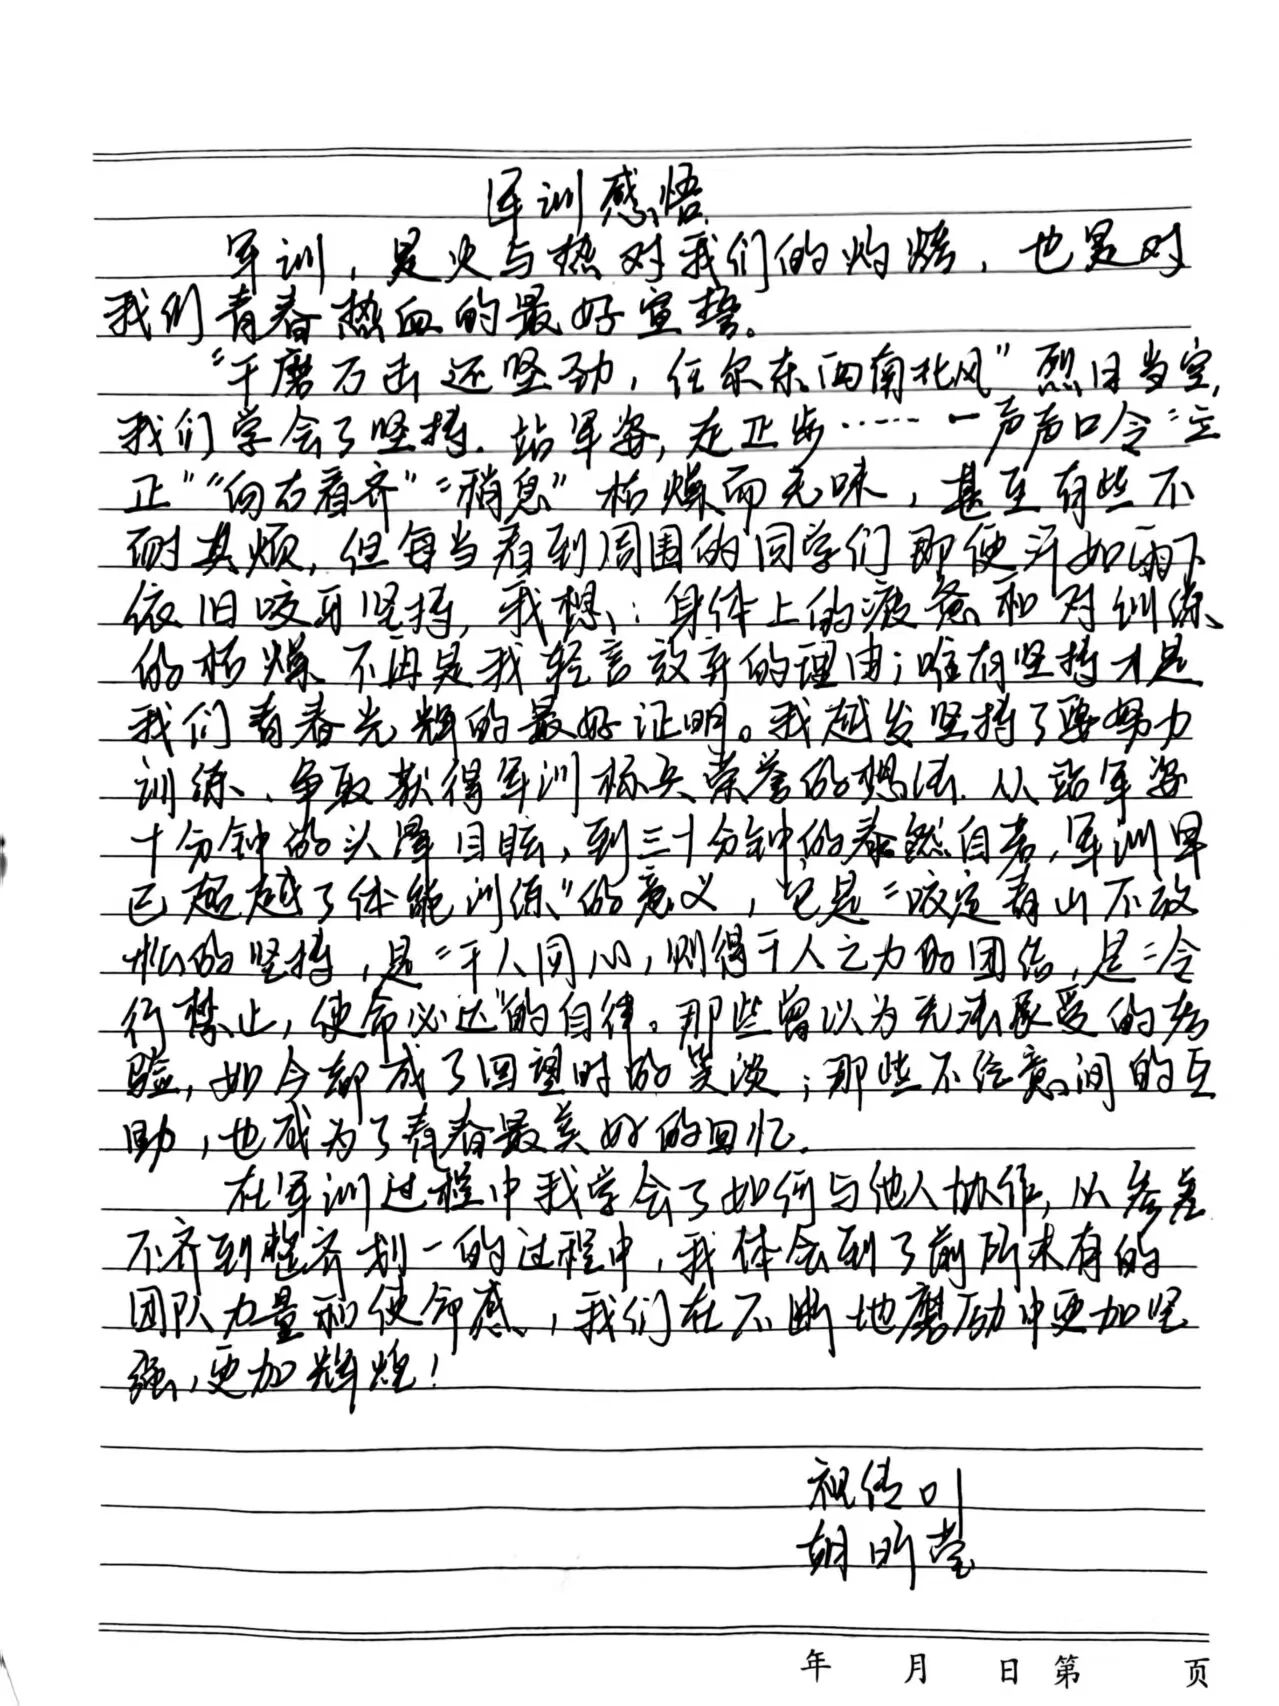 军训感悟
军训，是火与热对我们的灼烤，也是对
我们青春热血的最好宣誓。
“千磨万击还坚劲，任尔东西南北风”烈日当空，
我们学会了坚持．站军姿，走正步……一声声口令“立
正”“向右看齐”“稍息”枯燥而无味，甚至有些不
耐其烦，但每当看到周围的同学们即使汗如雨下
依旧咬牙坚持，我想：身体上的疲惫和对训练
的枯燥不再是我轻言放弃的理由；唯有坚持才是
我们青春光辉的最好证明。我越发坚持了要努力
训练、争取获得军训标兵荣誉的想法．从站军姿
十分钟的头晕目眩，到三十分钟的泰然自若，军训早
已超越了“体能训练”的意义，它是“咬定青山不放
松的坚持，是“千人同心，则得千人之力的团结，是“令
行禁止，使命必达”的自律。那些曾以为无法承受的考
验，如今都成了回望时的笑谈；那些不经意间的互
助，也成为了青春最美好的回忆．
在军训过程中我学会了如何与他人协作，从参差
不齐到整齐划一的过程中，我体会到了前所未有的
团队力量和使命感，我们在不断地磨励中更加坚
强，更加辉煌！
视传
胡昕莹
年 月 日 第 页